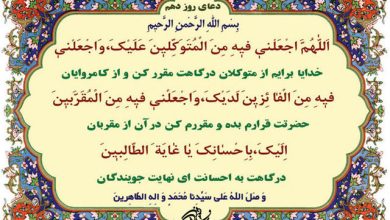 دعای روز دهم
بِسْمِ اللَّهِ الرَّحْمنِ الرَّحِيمِ
اَللّهُمَّ اجْعَلْني فيهِ مِنَ الْمُتَوَكِّلينَ عَلَيْكَ،وَاجْعَلْني
خدایا برایم از متوکلان درگاهت مقرر کن و از کامروایان
فيهِ مِنَ الْفاَّئِزينَ لَدَيْكَ،وَاجْعَلْني فيهِ مِنَ الْمُقَرَّبينَ
حضرتت قرارم بده و مقررم کن درآن از مقربان
اِلَيْكَ،بِاِحْسانِكَ يا غايَةَ الطّالِبينَ
درگاهت به احسانت ای نهایت جویندگان
وَ صَلَّ اللهُ عَلی سَیِّدِنا مُحَمَّدٍ وَ الِهِ الطّاهِرین